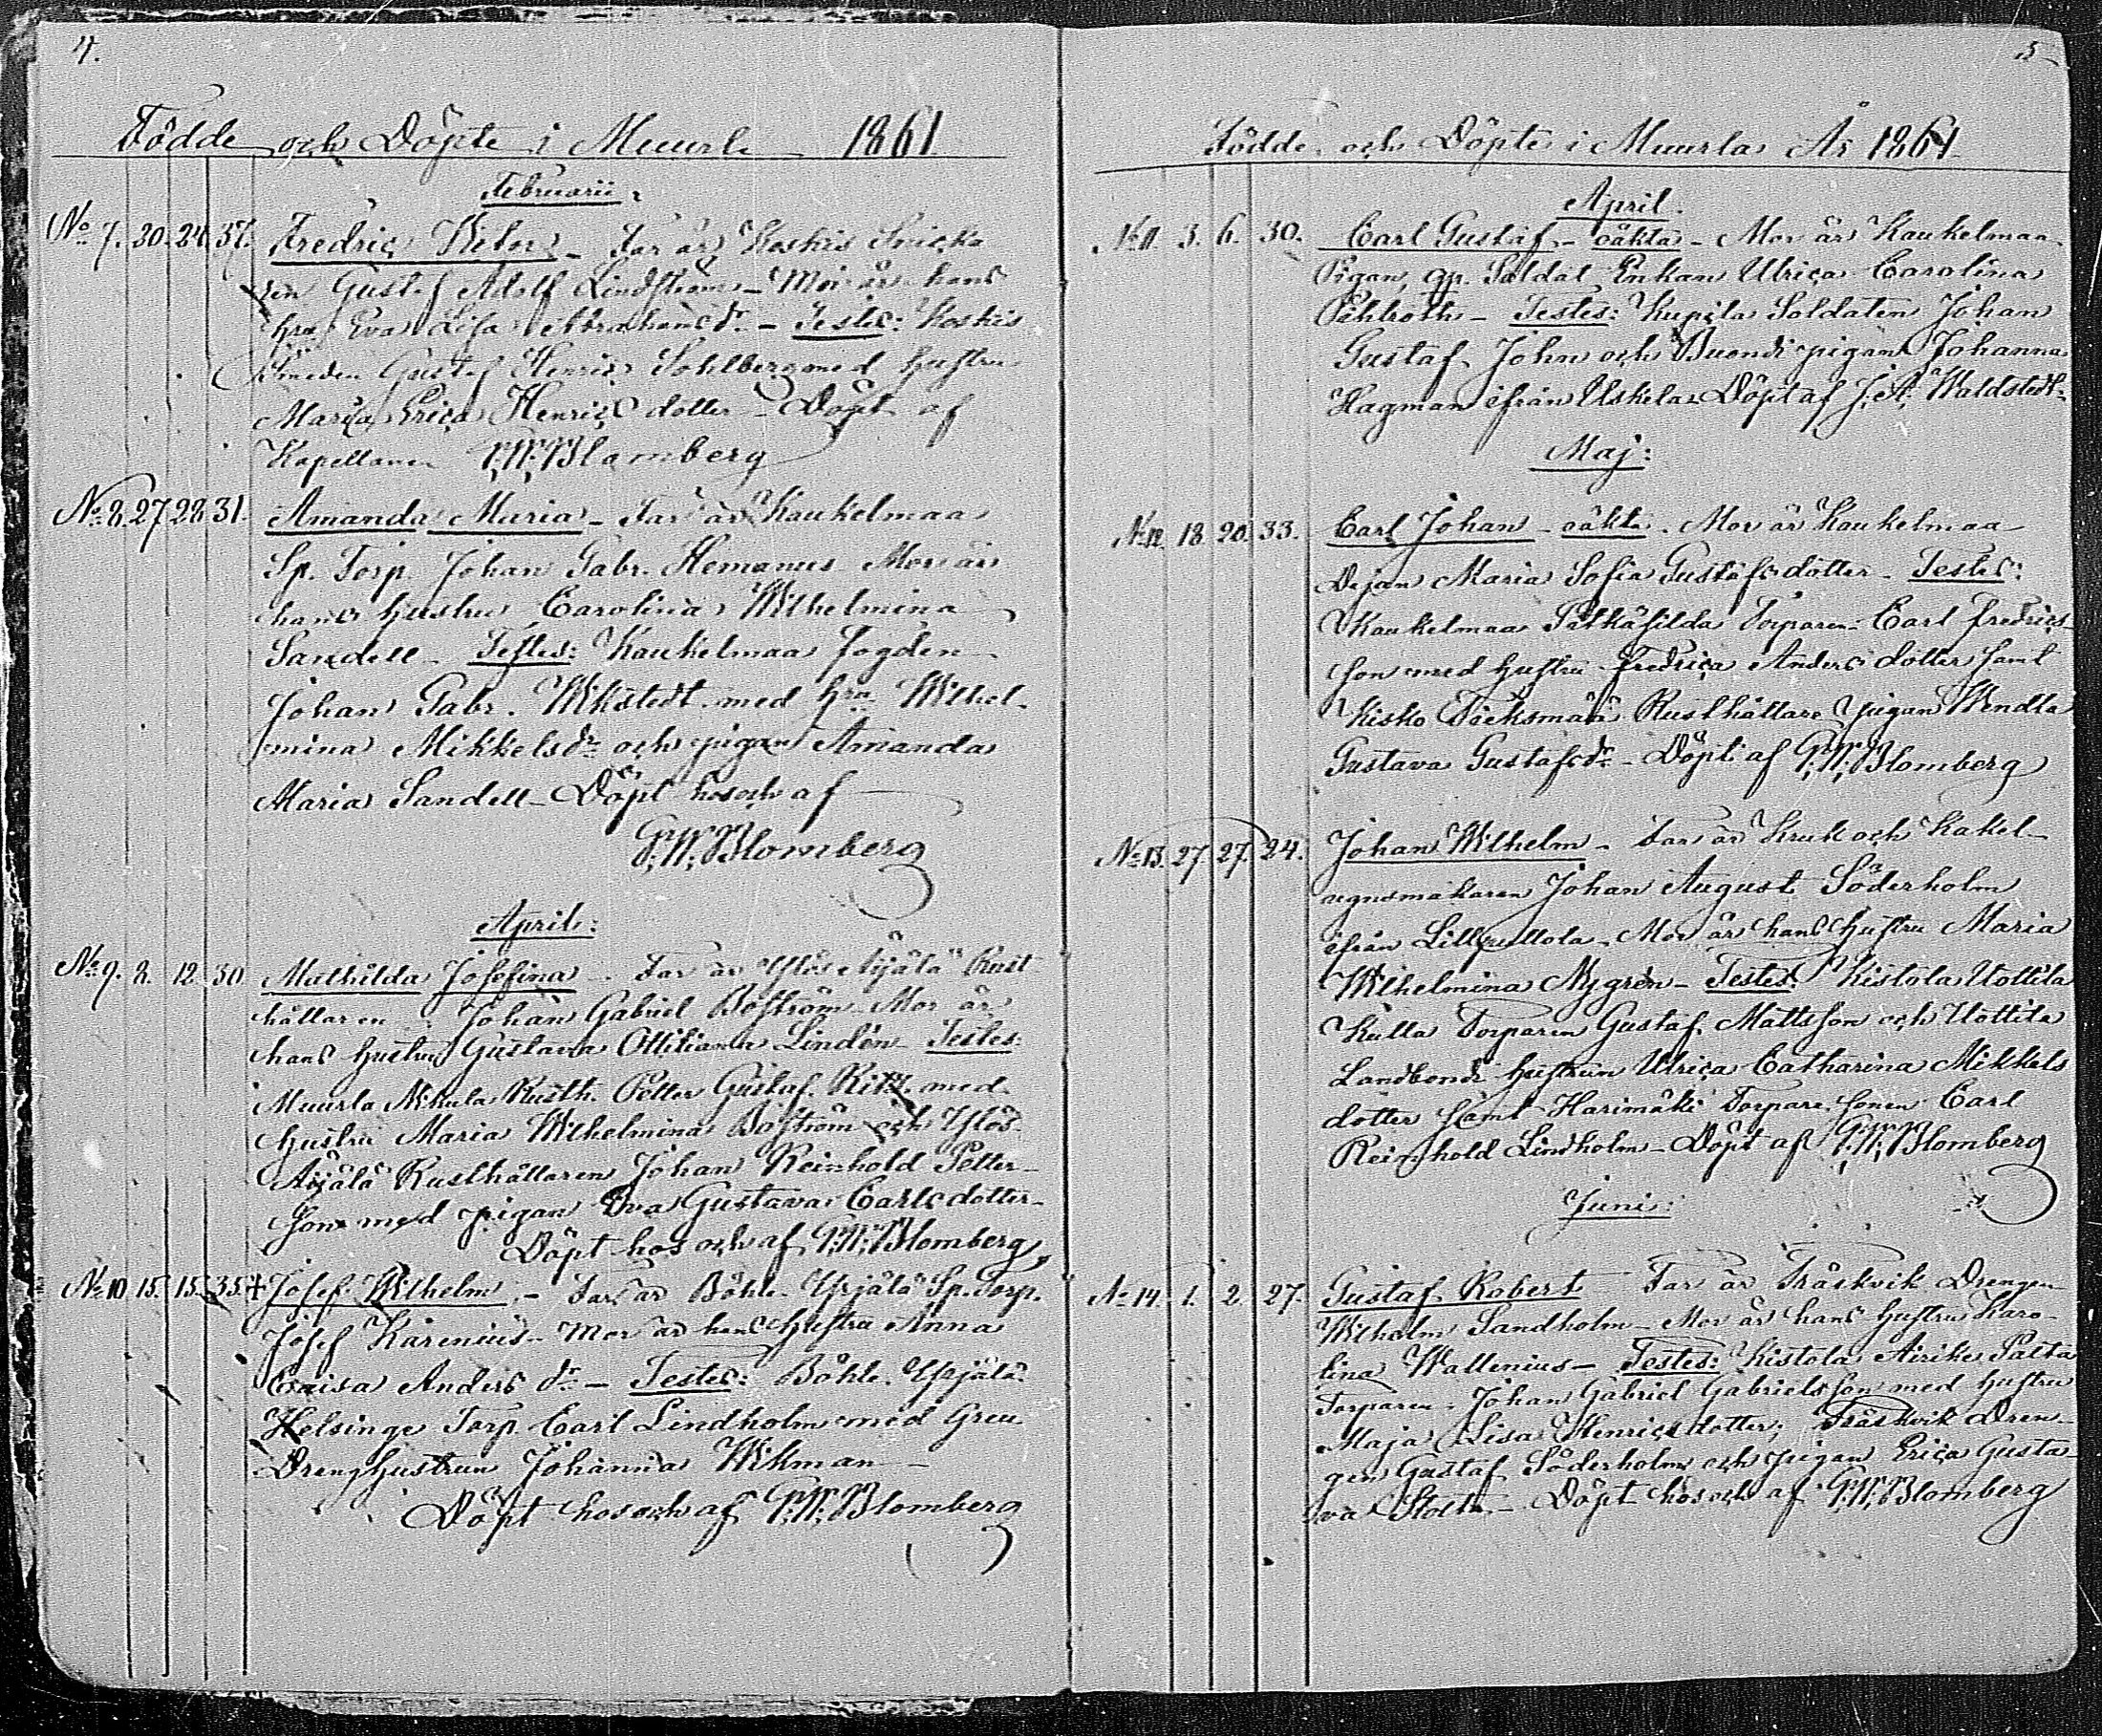 4.
Födde och Döpte i Muurla 1861
Februarii
No 7. 20. 24. 37. Fredric Victor - Far är Koskis Snicka
ren Gustaf Adolf Lindström - Mor är hans
hru Eva Lisa Abrahamsdr - Testes: Koskis
Smeden Gustaf Henric Sohlberg med hustru
Maria Erica Henricsdotter - Döpt af
Kapellanen G.W. Blomberg
No 8. 27. 28. 31. Amanda Maria - Far är Kaukelmaa
Sp. Torp. Johan Gabr. Hemanus Mor är
hans hustru Carolina Wilhelmina
Sandell - Testes: Kaukelmaa fogden
Johan Gabr. Wikstedt med hru Wilhel-
mina Mikkelsdr och pigan Amanda
Maria Sandell - Döpt hos och af
G.W. Blomberg
April:
No 9. 8. 12. 30 Mathilda Josefina - Far är Ylös Äijälä Rust
hållaren Johan Gabriel Boström - Mor är
hans hustru Gustava Ottiliana Lindén - Testes:
Muurla Nikula Rusth. Petter Gustaf med
hustru Maria Wilhelmina Boström och Ylös
Äijälä Rusthållaren Johan Reinhold Petter-
son med pigan Eva Gustava Carlsdotter -
Döpt hos och af G.W. Blomberg
No 10 15. 15. 35. + Josef Wilhelm - Far är Böhle Yrjälä Sp. Torp.
Josef Karenius - Mor är hans hustru Anna
Caisa Anders dr - Testes: Böhle Yrjälä
Helsinge Torp. Carl Lindholm med
Dränghustrun Johanna Wikman -
Döpt hos och af G.W. Blomberg
5
Födde och Döpte i Muurla År 1861
April.
No 11 3. 6. 30. Carl Gustaf - oäkta - Mor är Kaukelmaa
Pigan, Soldat Enkan Ulrica Carolina
Testes: Kupila Soldaten Johan
Gustaf John och pigan Johanna
Hagman ifrån Uskela - Döpt af J. A. Waldstedt
Maj:
No 12. 18. 20. 33. Carl Johan - oäkta. Mor är Kaukelmaa
Dejan Maria Sofia Gustafsdotter - Testes:
Kaukelmaa Torparen Carl Fredrics-
son med hustru Fredrica Andersdotter samt
Kisko Rusthållare pigan Wendla
Gustava Gustafsdr - Döpt af G.W. Blomberg
No 13. 27. 27. 24. Johan Wilhelm - Far är Kruk och Kakel-
ugnsmakaren Johan August Söderholm
ifrån - Mor är hans hustru Maria
Wilhelmina Nygrén - Testes: Kistola Uottila
Kulla Torparen Gustaf Mattsson och Uottila
Landbonde hustrun Ulrica Catharina Mikkels
dotter samt Harimäki Torpare sonen Carl
Reinhold Lindholm - Döpt af G.W. Blomberg
Juni:
No 14. 1. 2. 27. Gustaf Robert Far är Träskvik Drengen
Wilhelm Sandholm - Mor är hans hustru Karo-
lina Wallenius - Testes: Kistola Airike Palta
Torparen Johan Gabriel Gabrielsson med hustru
Maja Lisa Henricsdotter; Träskvik Dren-
gen Gustaf Söderholm och pigan Erica Gusta-
va - Döpt hos och af G.W. Blomberg